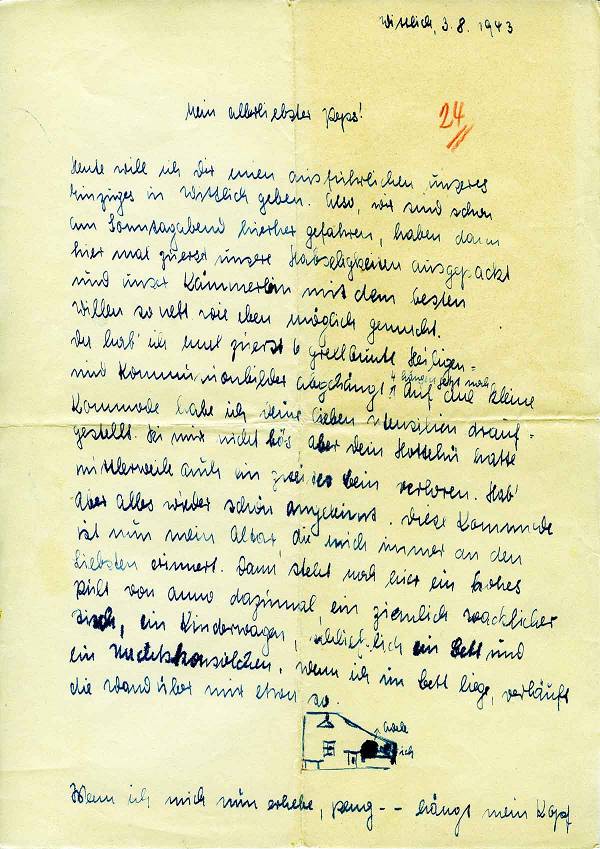 Wittlich, 3.8.1943
Mein allerliebster Peps!
24
Heute will ich Dir einen ausführlichen unseres
Einzuges in Wittlich geben. Also, wir sind schon
am Sonntagabend hierher gefahren, haben dann
hier mal zuerst unsere Habseligkeiten ausgepackt
und unser Kämmerlein mit dem besten
Willen so nett wie eben möglich gemacht.
Da hab' ich mal zuerst 6 grellbunte Heiligen-
und Kommunionbilder abgehängt, 4 hängen jetzt noch. Auf die kleine
Kommode habe ich deine lieben Utensilien drauf-
gestellt. Sei mir nicht bös aber dein Hottehü hatte
mittlerweile auch ein zweites Bein verloren. Hab'
aber alles wieder schön angeleimt. Diese Kommode
ist nun mein Altar, die mich immer an den
Liebsten erinnert. Dann steht noch hier ein hohes
Pult von anno dazumal, ein ziemlich wacklicher
Tisch, ein Kinderwagen, schließlich ein Bett und
ein Nachtskonsölchen. Wenn ich im Bett liege, verläuft
die Wand über mir etwa so.
ich
Wenn ich mich nun erhebe, peng -- hängt mein Kopf